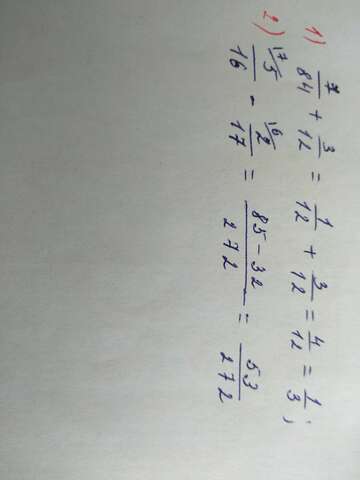 1) 7/84 + 3/12 = 1/12 + 3/12 = 4/12 = 1/3;
2) 17 5/16 - 16 2/17 = 85-32/272 = 53/272